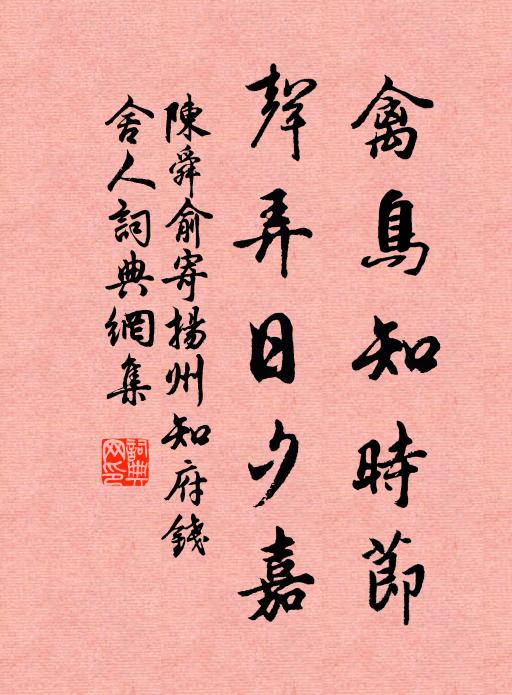 禽鳥知時節
聲弄日夕嘉
陳舜俞寄揚州知府錢
舍人詞典網集
詞典
网印